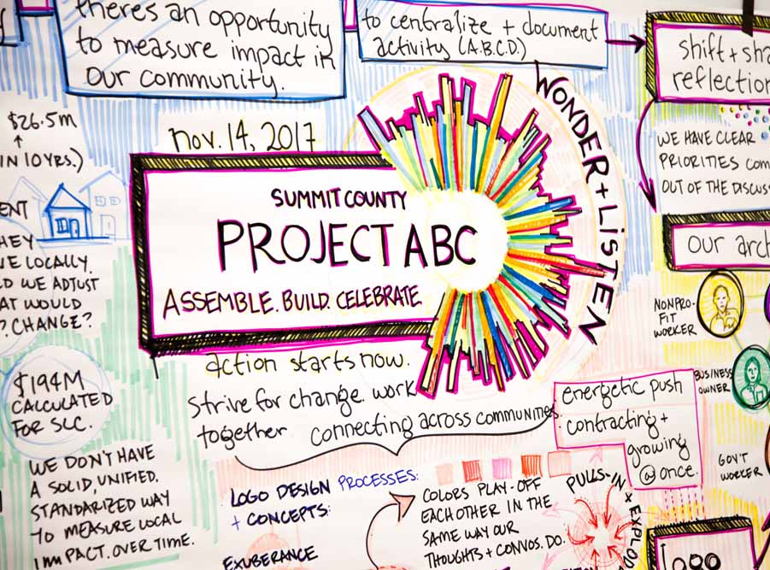 there's an opportunity
to measure impact in
our community.
to centralize + document
activity (A.B.C.D.)
shift + sha
reflection
$26.5M
IN 10 YRS.)
nov. 14, 2017
SUMMIT COUNTY
PROJECT ABC
ASSEMBLE. BUILD. CELEBRATE.
WONDER + LISTEN
WE HAVE CLEAR
PRIORITIES COM
OUT OF THE DISCUS
our arch
NONPRO-
FIT
WORKER
BUSINESS
OWNER
GOV'T
WORKER
ENT
HEY
VE LOCALLY.
LD WE ADJUST
AT WOULD
? CHANGE?
$194M
CALCULATED
FOR SLC.
WE DON'T HAVE
A SOLID, UNIFIED,
STANDARDIZED WAY
TO MEASURE LOCAL
IMPACT. OVER TIME.
action starts now.
strive for change work
together connecting across communities.
energetic push
contracting +
growing
@ once.
LOGO DESIGN PROCESSES:
+ CONCEPTS:
EXUBERANCE
COLORS PLAY-OFF
EACH OTHER IN THE
SAME WAY OUR
THOUGHTS + CONVOS. DO.
PULLS-IN + EXPLO